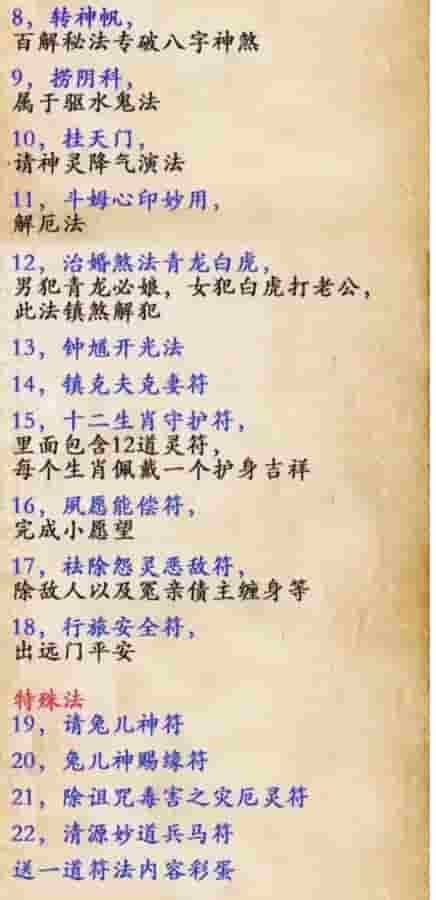 8，转神帆，
百解秘法专破八字神煞
9，捞阴科，
属于驱水鬼法
10，挂天门，
请神灵降气演法
11，斗姆心印妙用，
解厄法
12，治婚煞法青龙白虎，
男犯青龙必娘，女犯白虎打老公，
此法镇煞解犯
13，钟馗开光法
14，镇克夫克妻符
15，十二生肖守护符，
里面包含12道灵符，
每个生肖佩戴一个护身吉祥
16，夙愿能偿符，
完成小愿望
17，祛除怨灵恶敌符，
除敌人以及冤亲债主缠身等
18，行旅安全符，
出远门平安
特殊法
19，请兔儿神符
20，兔儿神赐缘符
21，除诅咒毒害之灾厄灵符
22，清源妙道兵马符
送一道符法内容彩蛋